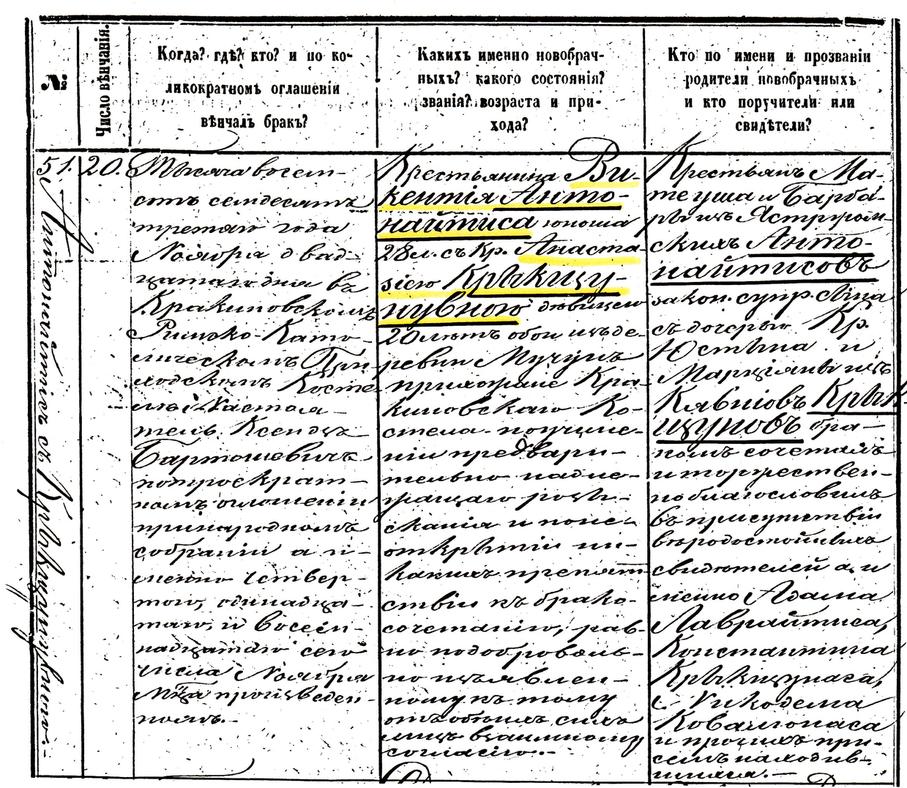 №
Число вѣнчанія.
Когда? гдѣ? кто? и по ко-
ликократномъ оглашеніи
вѣнчалъ бракъ?
Какихъ именно новобрач-
ныхъ? какого состоянія?
званія? возраста и при-
хода?
Кто по имени и прозванію
родители новобрачныхъ
и кто поручители или
свидѣтели?
51.
20.
Тысяча восем-
сотъ семдесятъ
третяго года
Ноября двад-
цатаго дня въ
Кракиновскомъ
Римско-Като-
лическомъ
Косте
лѣ Настоя-
тель Ксендзъ
Бартошевичъ
потроекрат-
номъ оглашеніи
принародномъ
собраніи а и-
менно четвер-
таго, одинадца-
таго и восем-
надцатаго сего
числа Ноября
М-ца произведен
номъ.
Крестьянина Ви-
кентія Анто-
найтиса юноша
28 л. съ Кр. Анаста-
зіею Крѣкщу-
нувною дѣвицею
20 лѣтъ обои изъ де-
ревни
прихожане Кра-
киновскаго Ко-
стела. по учине-
ніи предвари-
тельно надле-
жащаго розы-
сканія и неис-
открытіи ни-
какихъ препятт
ствіи къ брако-
сочетанію, рав-
но подоброволь-
но изъявлен-
ному къ тому
отъ обоихъ сихъ
лицъ взаимному
согласію.
Крестьянъ Ма-
теуша и Барба-
ры изъ
скихъ Анто-
найтисовъ
закон. супр. сына
съ дочерью Кр.
Юстина и
Марціянны изъ
Крѣк
щуновъ бра-
комъ сочеталъ
и торжествен-
но благословилъ
въ присутствіи
вѣродостойныхъ
свидѣтелей а и
менно Адама
Лаврайтиса,
Константина
Крѣкщунаса,
и Никодема
Ковалюнаса
и прочихъ при-
семъ находив-
шихся.
Антонайтисъ съ Крѣкщунувною.